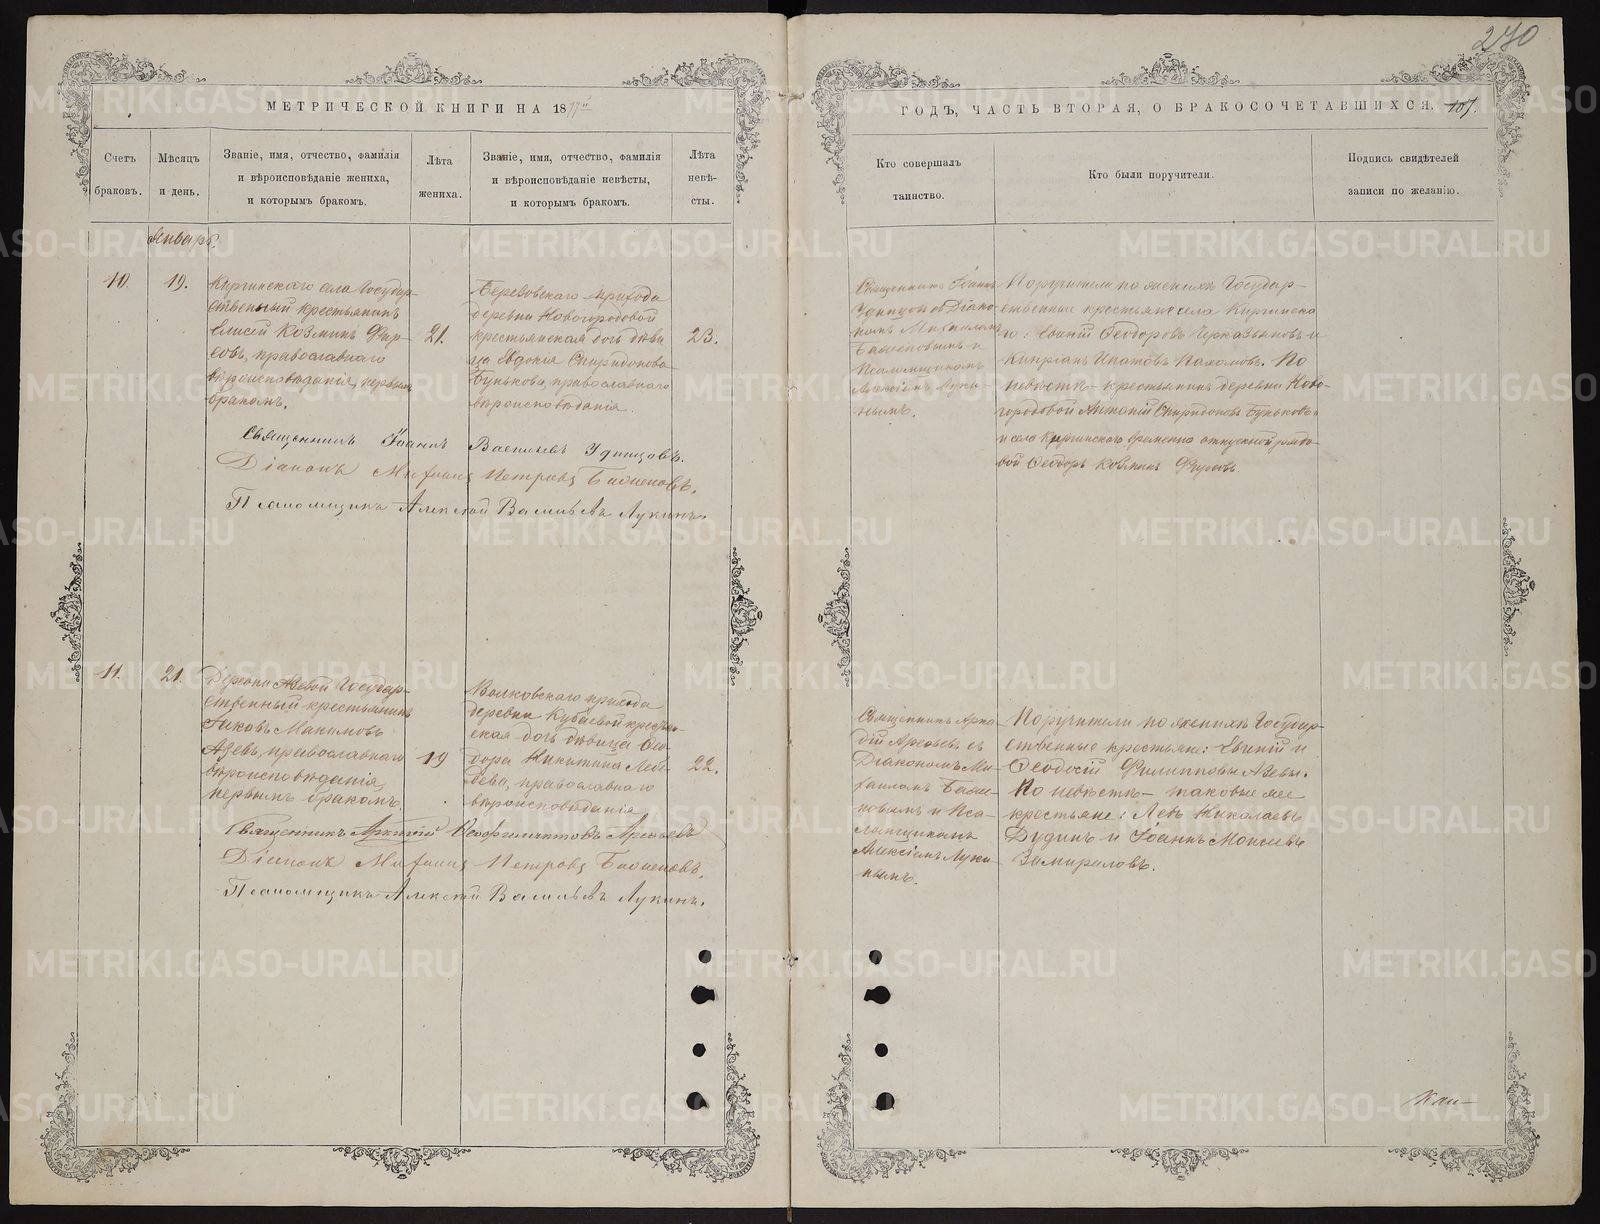 270
МЕТРИЧЕСКОЙ КНИГИ НА 1877
ГОДЪ, ЧАСТЬ ВТОРАЯ, О БРАКОСОЧЕТАВШИХСЯ. 107.
Счетъ браковъ.
Мѣсяцъ и день.
Званіе, имя, отчество, фамилія
и вѣроисповѣданіе жениха,
и которымъ бракомъ.
Лѣта жениха.
Званіе, имя, отчество, фамилія
и вѣроисповѣданіе невѣсты,
и которымъ бракомъ.
Лѣта невѣ-
сты.
Кто совершалъ
таинство.
Кто были поручители.
Подпись свидѣтелей
записи по желанію.
Январь.
10.
19.
Киргинскаго села Государ-
ственный крестьянинъ
Елисей Козминъ Фир-
совъ, православнаго
вѣроисповѣданія, первымъ
бракомъ.
21.
Беревовскаго прихода
деревни Новогородовой
крестьянская дочь дѣви
ца Евдокія Спиридонова
Бунькова, православнаго
вѣроисповѣданія.
23.
Священникъ Іоаннъ
Удинцовъ съ Діако-
номъ
и
Псаломщикомъ
Алексіемъ Луки-
нымъ.
Поручители по женихѣ Государ-
ственные крестьяне села Киргинска
го: Евфимій Феодоровъ и
Кипріанъ Ипатовъ Пахомовъ. По
невѣстѣ - крестьянинъ деревни Ново-
городовой Антоній Спиридоновъ Буньковъ и
и села Киргинскаго временно отпускной рядо-
вой Феодоръ Козминъ Фирсовъ
Священникъ Іоаннъ Васильевъ Удинцовъ.
Діаконъ Петровъ
Псаломщикъ Алексѣй Васильевъ Лукинъ.
11.
21.
Деревни Азевой Государ-
ственный крестьянинъ
Іаковъ Максимовъ
Азевъ, православнаго
вѣроисповѣданія,
первымъ бракомъ.
19
Волковскаго прихода
деревни Кубаевой крестьян-
ская дочь дѣвица Ѳео-
дора Никитина
православнаго
вѣроисповѣданія
22.
Священникъ Арка-
дій Арефьевъ съ
Діакономъ
и Пса-
ломщикомъ
Алексіемъ Луки-
нымъ.
Поручители по женихѣ Государ-
ственные крестьяне: Евфимій и
Ѳеодосій Филипповы Азевы.
По невѣстѣ - таковые же
крестьяне: Левъ Николаевъ
Дудинъ и Іоаннъ Моисеевъ
Священникъ Аркадій Арефьевъ
Діаконъ Петровъ
Псаломщикъ Алексѣй Васильевъ Лукинъ.
METRIKI.GASO-URAL.RU